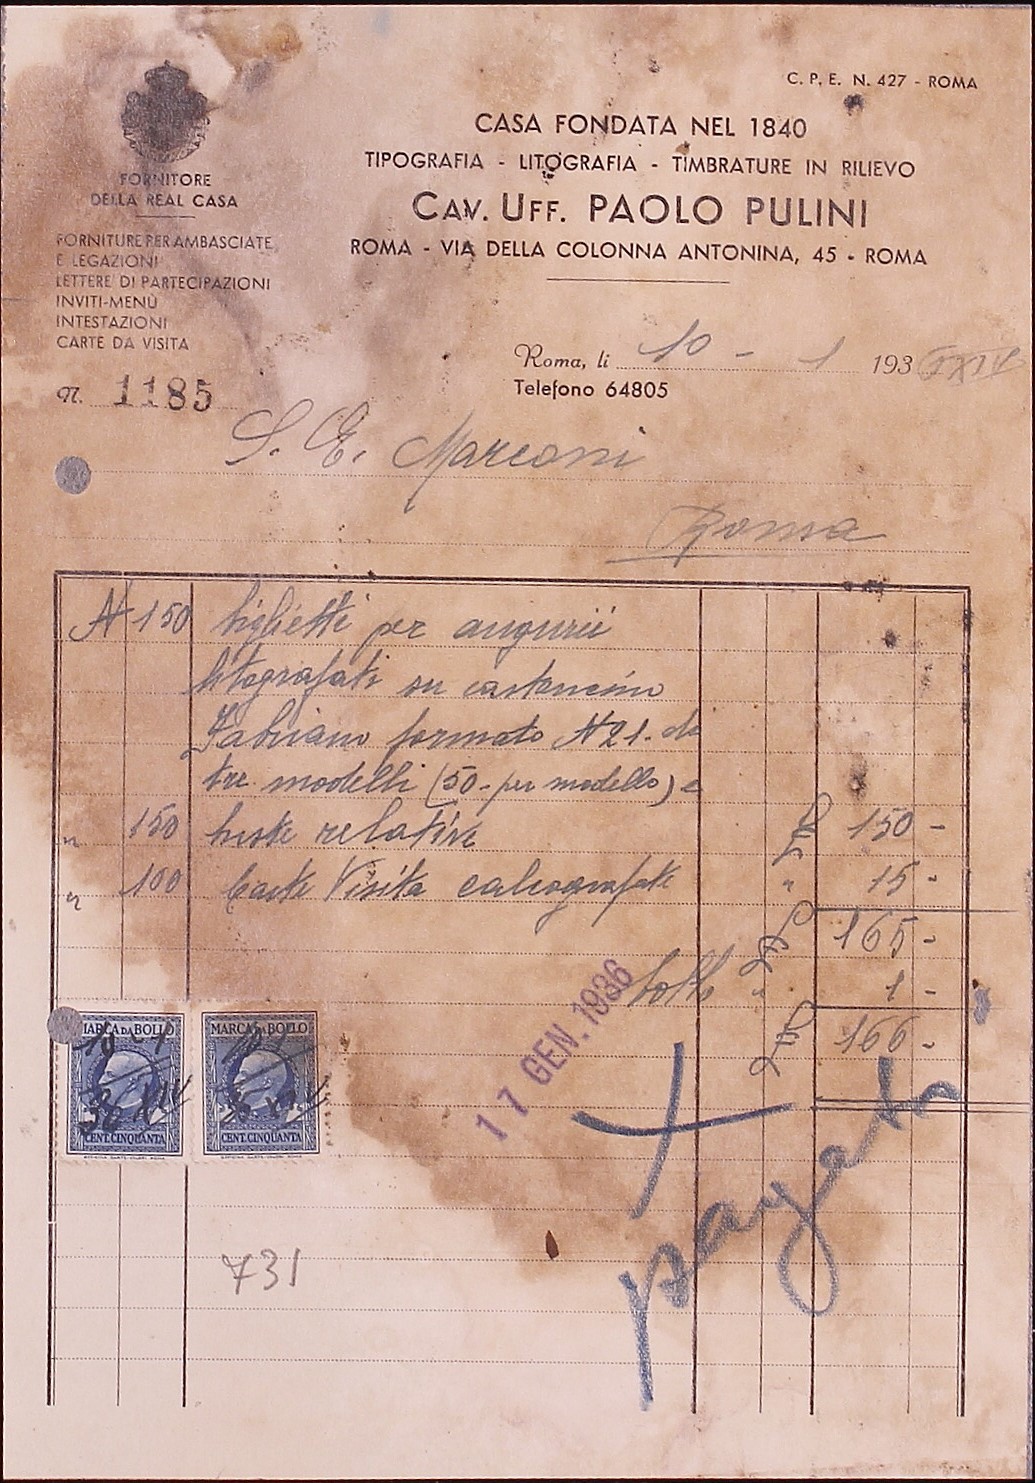 C. P. E. N. 427 - ROMA
CASA FONDATA NEL 1840
TIPOGRAFIA - LITOGRAFIA - TIMBRATURE IN RILIEVO
CAV. UFF. PAOLO PULINI
ROMA - VIA DELLA COLONNA ANTONINA, 45 - ROMA
FORNITORE
DELLA REAL CASA
FORNITURE PER AMBASCIATE
E LEGAZIONI
LETTERE DI PARTECIPAZIONI
INVITI-MENÙ
INTESTAZIONI
CARTE DA VISITA
N. 1185
Roma, li 10 - 1 193
Telefono 64805
S. E. Marconi
Roma
N 150 biglietti per augurii
litografati su cartoncino
Fabriano formato N 21. da
tre modelli (50 - per modello) e
" 150 buste relative £ 150 -
" 100 Carte Visita calcografate " 15 -
£ 165 -
bollo " 1 -
£ 166 -
17 GEN. 1936
MARCA DA BOLLO
CENT. CINQUANTA
MARCA DA BOLLO
CENT. CINQUANTA
pagato
731